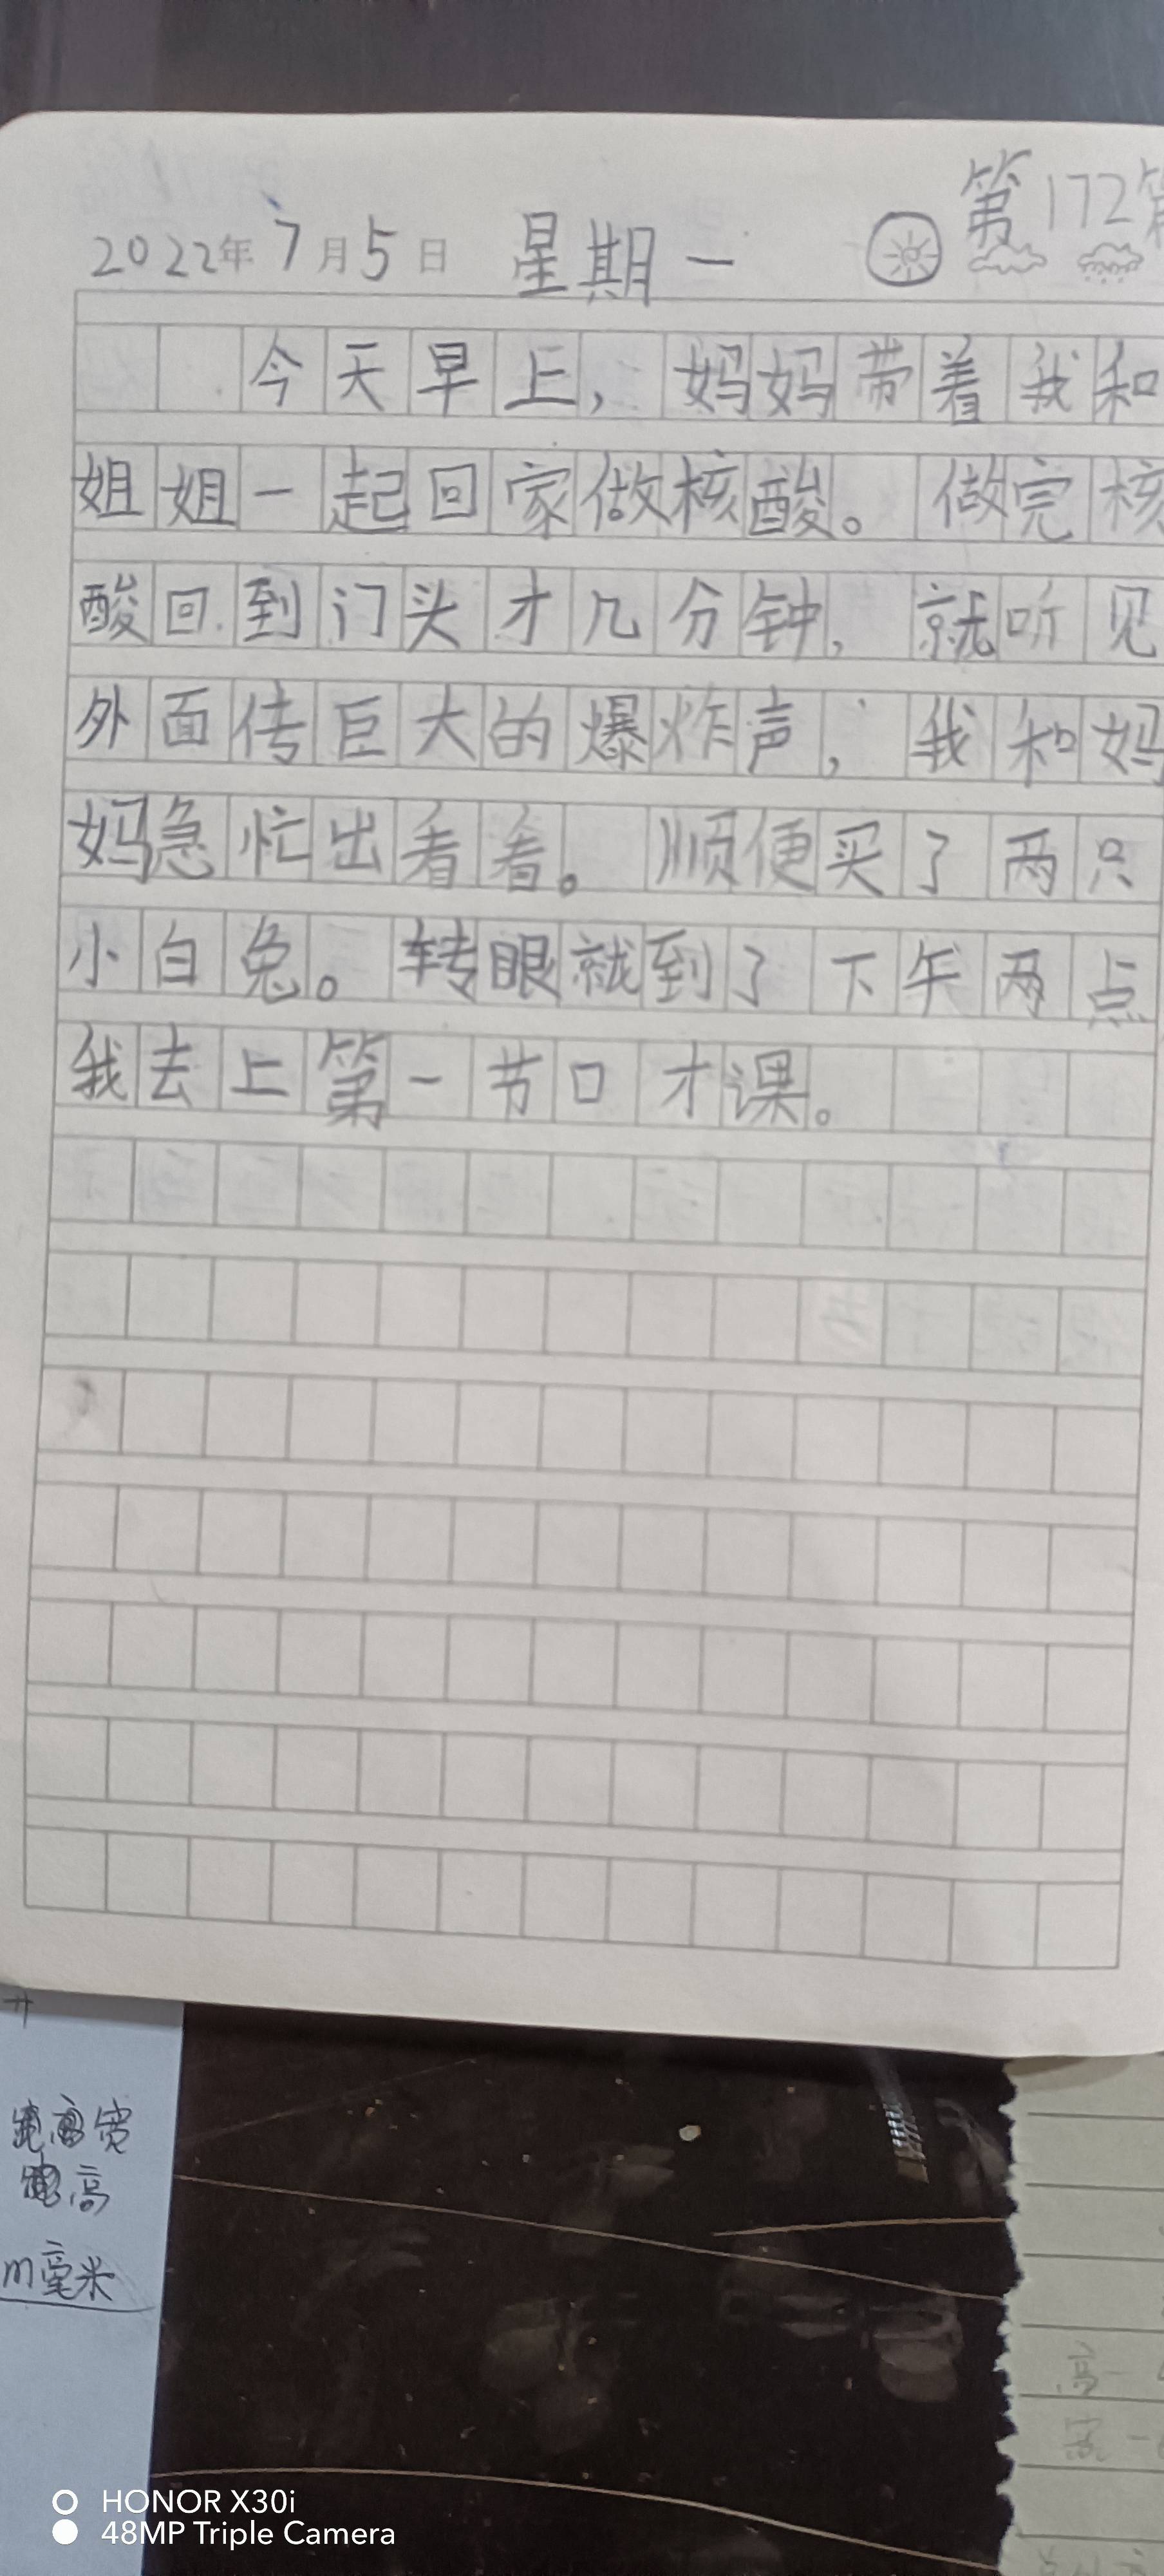 第172篇
2022年7月5日 星期一
今天早上，妈妈带着我和
姐姐一起回家做核酸。做完核
酸回到门头才几分钟，就听见
外面传巨大的爆炸声，我和妈
妈急忙出看看。顺便买了两只
小白兔。转眼就到了下午两点
我去上第一节口才课。
高宽
高
m毫米
高一
宽一
HONOR X30i
48MP Triple Camera